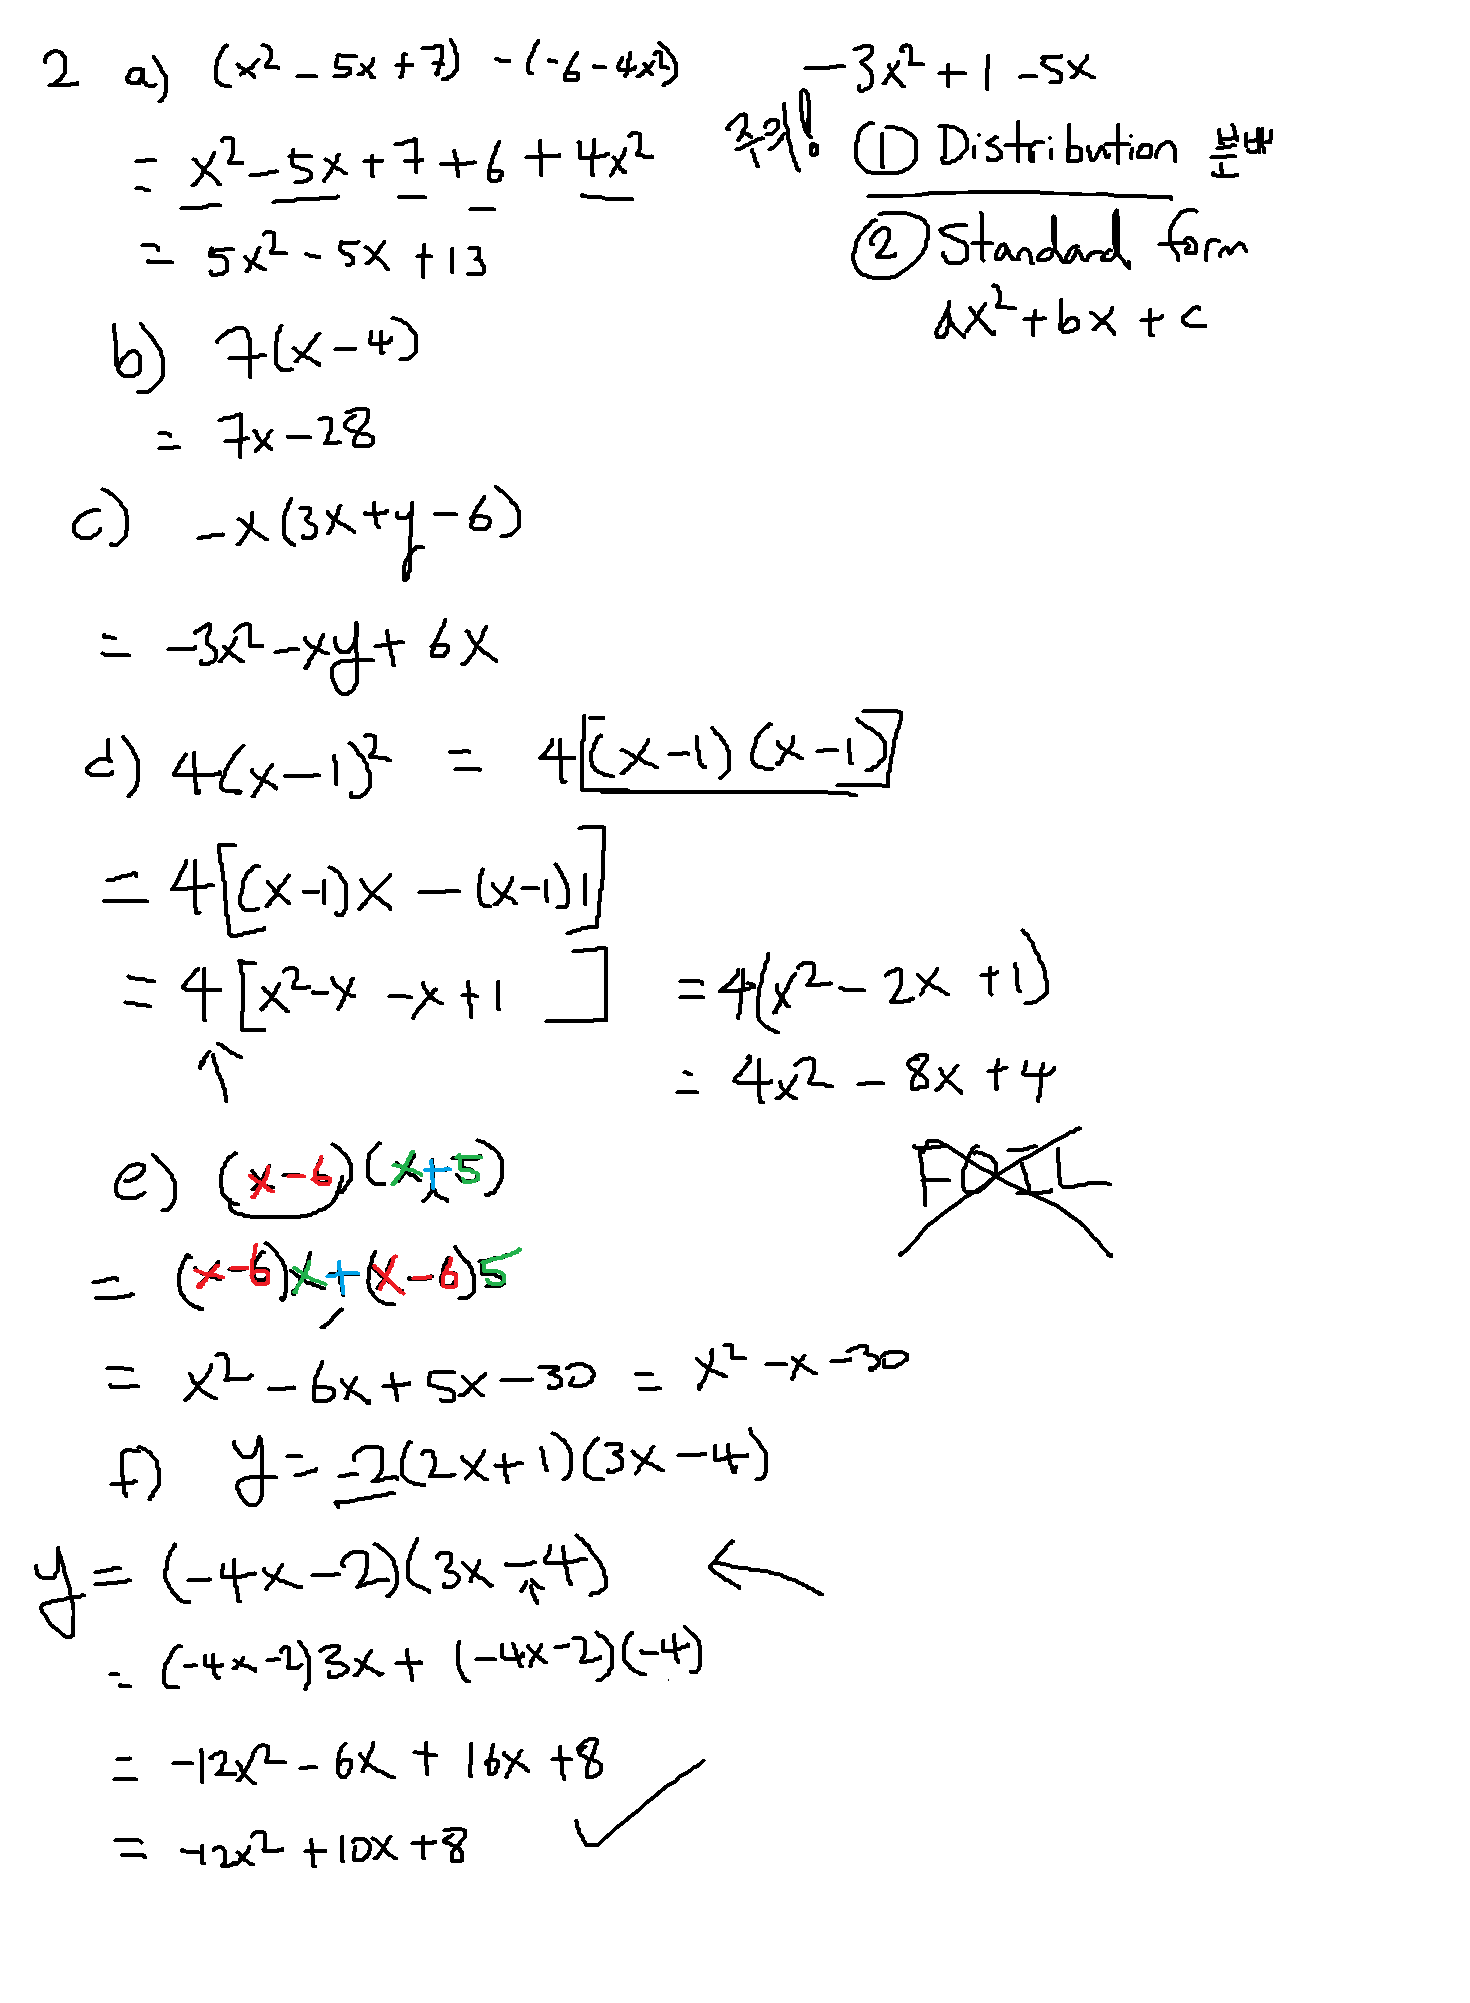 2 a) (x² - 5x + 7) - (-6 - 4x²)
= x² - 5x + 7 + 6 + 4x²
= 5x² - 5x + 13
-3x² + 1 - 5x
주의! ① Distribution 분배
② Standard form
ax² + bx + c
b) 7(x - 4)
= 7x - 28
c) -x(3x + y - 6)
= -3x² - xy + 6x
d) 4(x - 1)² = 4[(x - 1)(x - 1)]
= 4[(x - 1)x - (x - 1)1]
= 4[x² - x - x + 1] = 4(x² - 2x + 1)
↑ = 4x² - 8x + 4
e) (x - 6)(x + 5)
FOIL
= (x - 6)x + (x - 6)5
= x² - 6x + 5x - 30 = x² - x - 30
f) y = -2(2x + 1)(3x - 4)
y = (-4x - 2)(3x - 4) ←
↑
= (-4x - 2)3x + (-4x - 2)(-4)
= -12x² - 6x + 16x + 8
= -12x² + 10x + 8 ✓